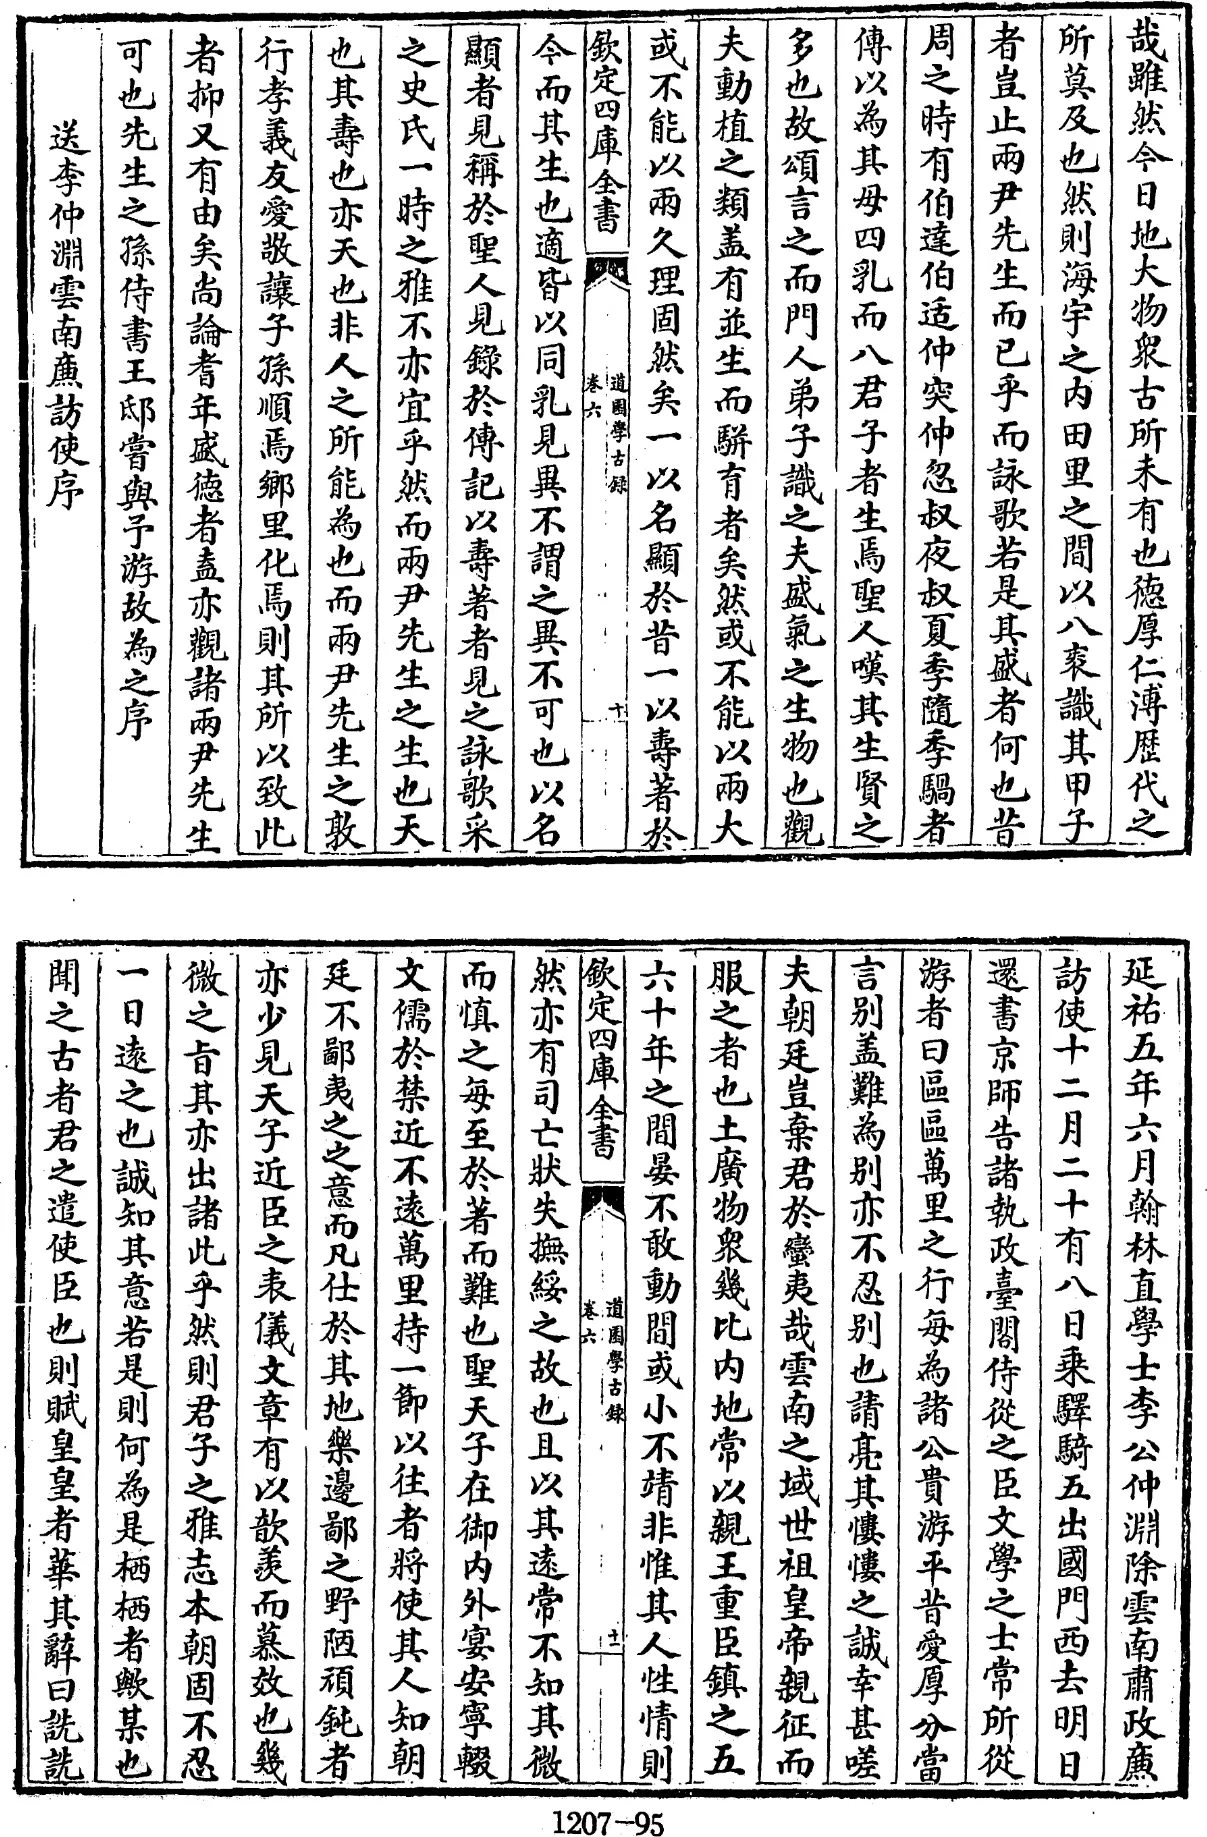 哉雖然今日地大物衆古所未有也德厚仁溥歴代之
所莫及也然則海宇之内田里之間以八袠識其甲子
者豈止兩尹先生而已乎而詠歌若是其盛者何也昔
周之時有伯達伯适仲突仲忽叔夜叔夏季隨季騧者
傳以為其母四乳而八君子者生焉聖人嘆其生賢之
多也故頌言之而門人弟子識之夫盛氣之生物也觀
夫動植之類盖有並生而駢育者矣然或不能以兩大
或不能以兩久理固然矣一以名顯於昔一以壽著於
欽定四庫全書
道園學古録
卷六
十
今而其生也適皆以同乳見異不謂之異不可也以名
顯者見稱於聖人見錄於傳記以壽著者見之詠歌采
之史氏一時之雅不亦宜乎然而兩尹先生之生也天
也其壽也亦天也非人之所能為也而兩尹先生之敦
行孝義友愛敬讓子孫順焉鄉里化焉則其所以致此
者抑又有由矣尚論耆年盛德者盍亦觀諸兩尹先生
可也先生之孫侍書王邸嘗與予游故為之序
送李仲淵雲南廉訪使序
延祐五年六月翰林直學士李公仲淵除雲南肅政廉
訪使十二月二十有八日乗驛騎五出國門西去明日
還書京師告諸執政臺閣侍從之臣文學之士常所從
游者曰區區萬里之行每為諸公貴游平昔愛厚分當
言別盖難為別亦不忍別也請亮其悽悽之誠幸甚嗟
夫朝廷豈棄君於蠻夷哉雲南之域世祖皇帝親征而
服之者也土廣物衆幾比内地常以親王重臣鎮之五
六十年之間晏不敢動間或小不靖非惟其人性情則
欽定四庫全書
道園學古録
卷六
十一
然亦有司亡狀失撫綏之故也且以其遠常不知其微
而慎之每至於著而難也聖天子在御内外宴安寧輟
文儒於禁近不遠萬里持一節以往者將使其人知朝
廷不鄙夷之之意而凡仕於其地樂邊鄙之野陋頑鈍者
亦少見天子近臣之表儀文章有以歆羨而慕效也幾
微之旨其亦出諸此乎然則君子之雅志本朝固不忍
一日遠之也誠知其意若是則何為是栖栖者歟某也
聞之古者君之遣使臣也則賦皇皇者華其辭曰詵詵
1207-95